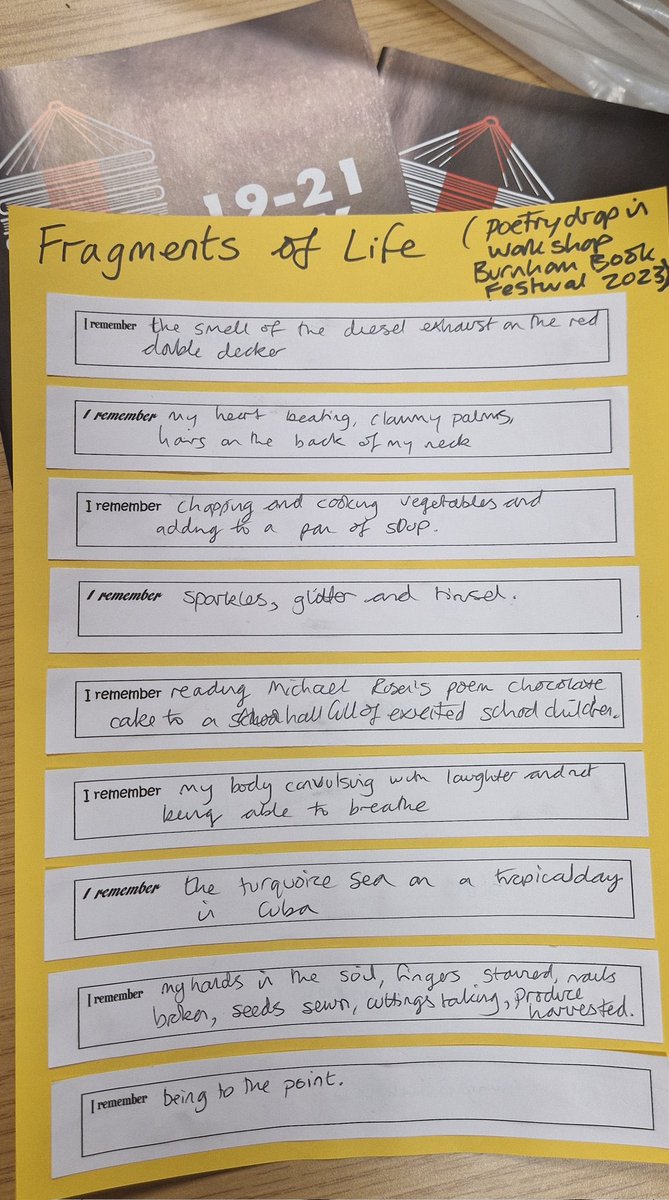 19-21
Fragments of Life
(Poetry drop in
workshop
Burnham Book
Festival 2023)
I remember the smell of the diesel exhaust on the red
double decker
I remember my heart beating, clammy palms,
hairs on the back of my neck
I remember chopping and cooking vegetables and
adding to a pan of soup.
I remember sparkles, glitter and tinsel.
I remember reading Michael Rosen's poem chocolate
cake to a school hall full of excited school children.
I remember my body convulsing with laughter and not
being able to breathe
I remember the turquoize sea on a tropical day
in Cuba
I remember my hands in the soil, fingers stained, nails
broken, seeds sewn, cuttings taking, produce
harvested.
I remember being to the point.